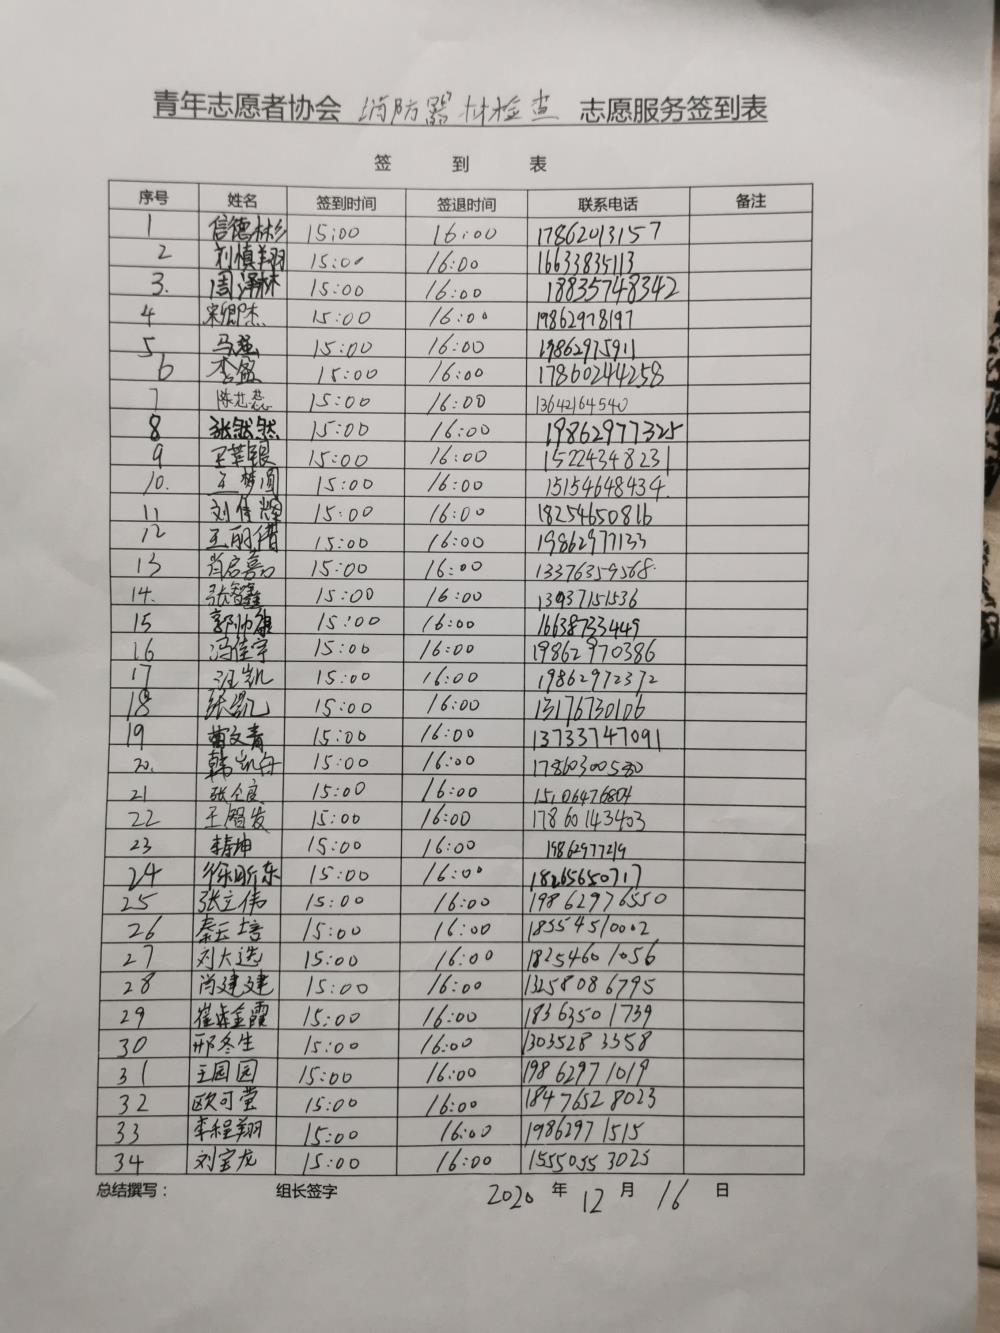 青年志愿者协会 消防器材检查 志愿服务签到表
签 到 表
序号 姓名 签到时间 签退时间 联系电话 备注
1 信德彬 15:00 16:00 17862013157
2 刘慎翔 15:00 16:00 16633835113
3. 周泽林 15:00 16:00 18835748342
4 宋卿杰 15:00 16:00 19862978197
5 马强 15:00 16:00 19862975911
6 李盈 15:00 16:00 17860244258
7 陈芯蕊 15:00 16:00 13642164540
8 张然然 15:00 16:00 19862977325
9 王苹银 15:00 16:00 15224348231
10. 王梦圆 15:00 16:00 15154648434
11 刘伟耀 15:00 16:00 18254650816
12 王丽倩 15:00 16:00 19862977133
13 肖启嘉 15:00 16:00 13376359568
14. 张智鑫 15:00 16:00 13937151536
15 郭帅 15:00 16:00 16638733449
16 冯佳宇 15:00 16:00 19862970386
17 汪凯 15:00 16:00 19862972372
18 张凯 15:00 16:00 13176730106
19 曹文青 15:00 16:00 13733747091
20. 韩凯舟 15:00 16:00 17860300580
21 张仝良 15:00 16:00 15106476804
22 王润发 15:00 16:00 17860143403
23 李坤 15:00 16:00 19862977219
24 徐昕东 15:00 16:00 18265650717
25 张立伟 15:00 16:00 19862976550
26 秦云培 15:00 16:00 18554510002
27 刘大选 15:00 16:00 18254601056
28 尚建建 15:00 16:00 13258086795
29 崔金霞 15:00 16:00 18363501739
30 邢冬生 15:00 16:00 13035283358
31 王园园 15:00 16:00 19862971019
32 欧可莹 15:00 16:00 18476528023
33 李程翔 15:00 16:00 19862971515
34 刘宝龙 15:00 16:00 15550553025
总结撰写： 组长签字 2020 年 12 月 16 日